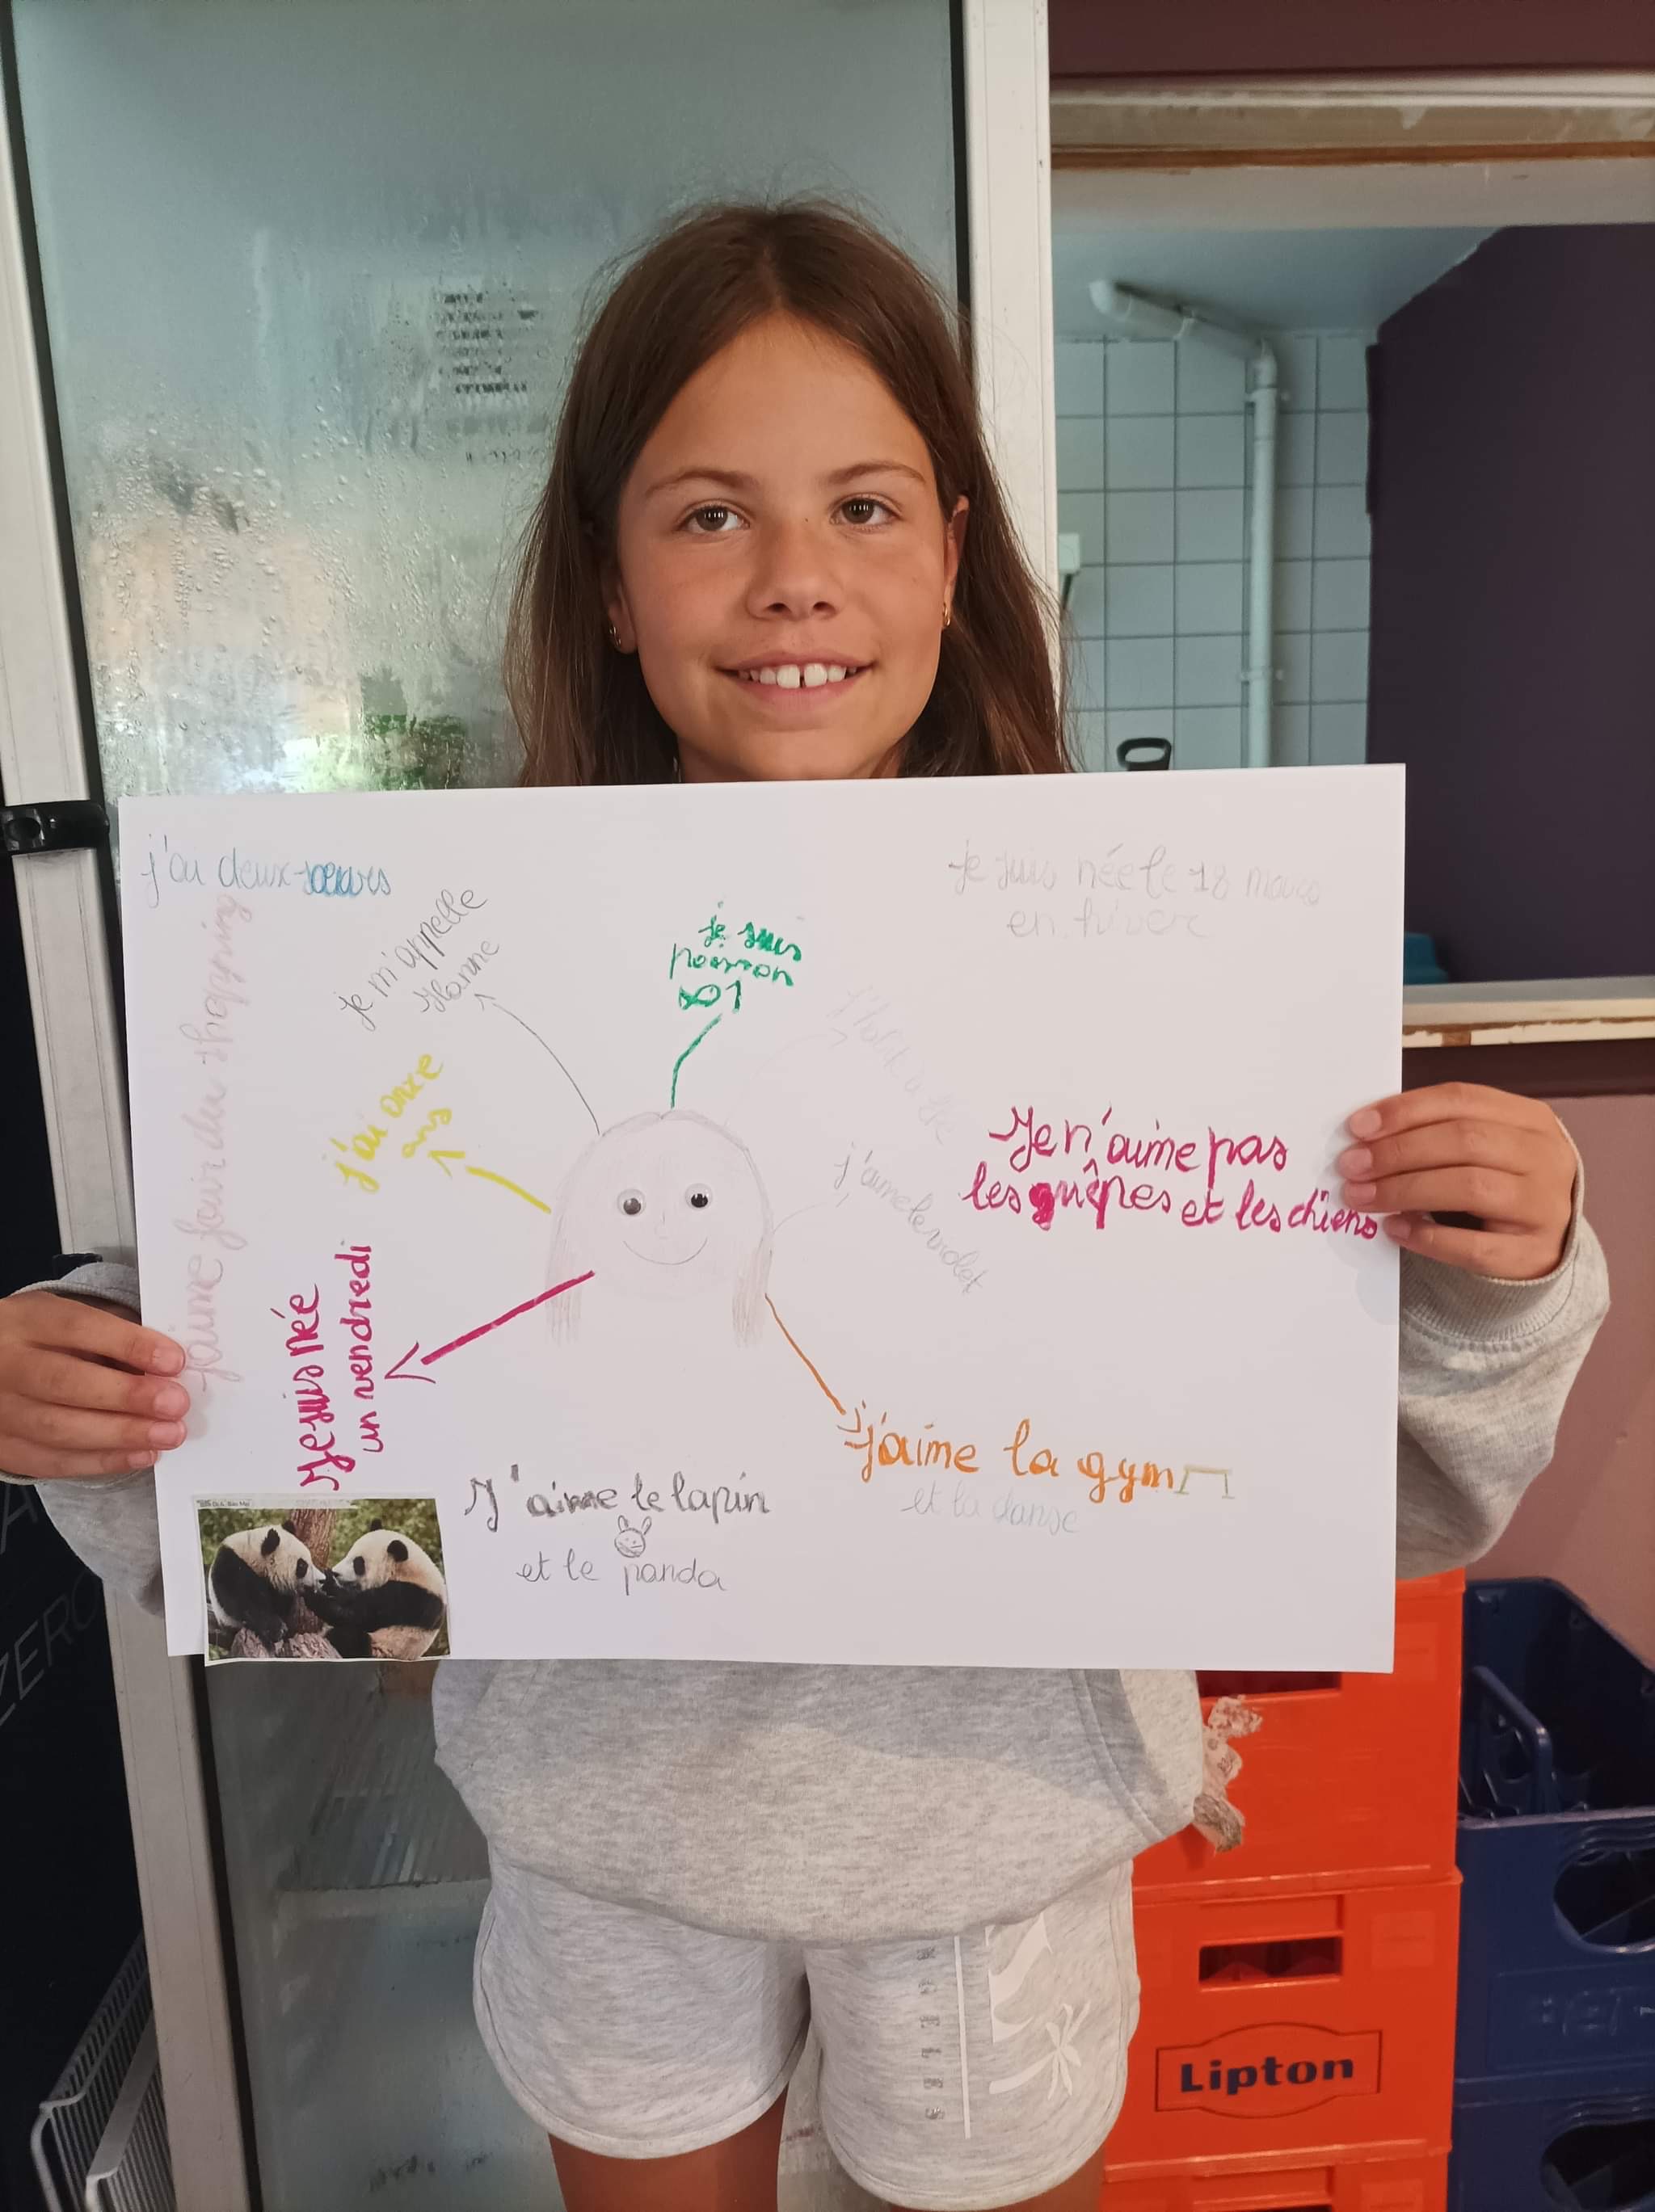 j'ai deux soeurs
je suis née le 18 mars
en hiver
je m'appelle
Hanne
je suis
poisson
j'ai onze
ans
j'aime faire du shopping
j'aime le violet
Je n'aime pas
les guêpes et les chiens
Je suis née
un vendredi
j'aime la gym
et la danse
J'aime le lapin
et le panda
Lipton